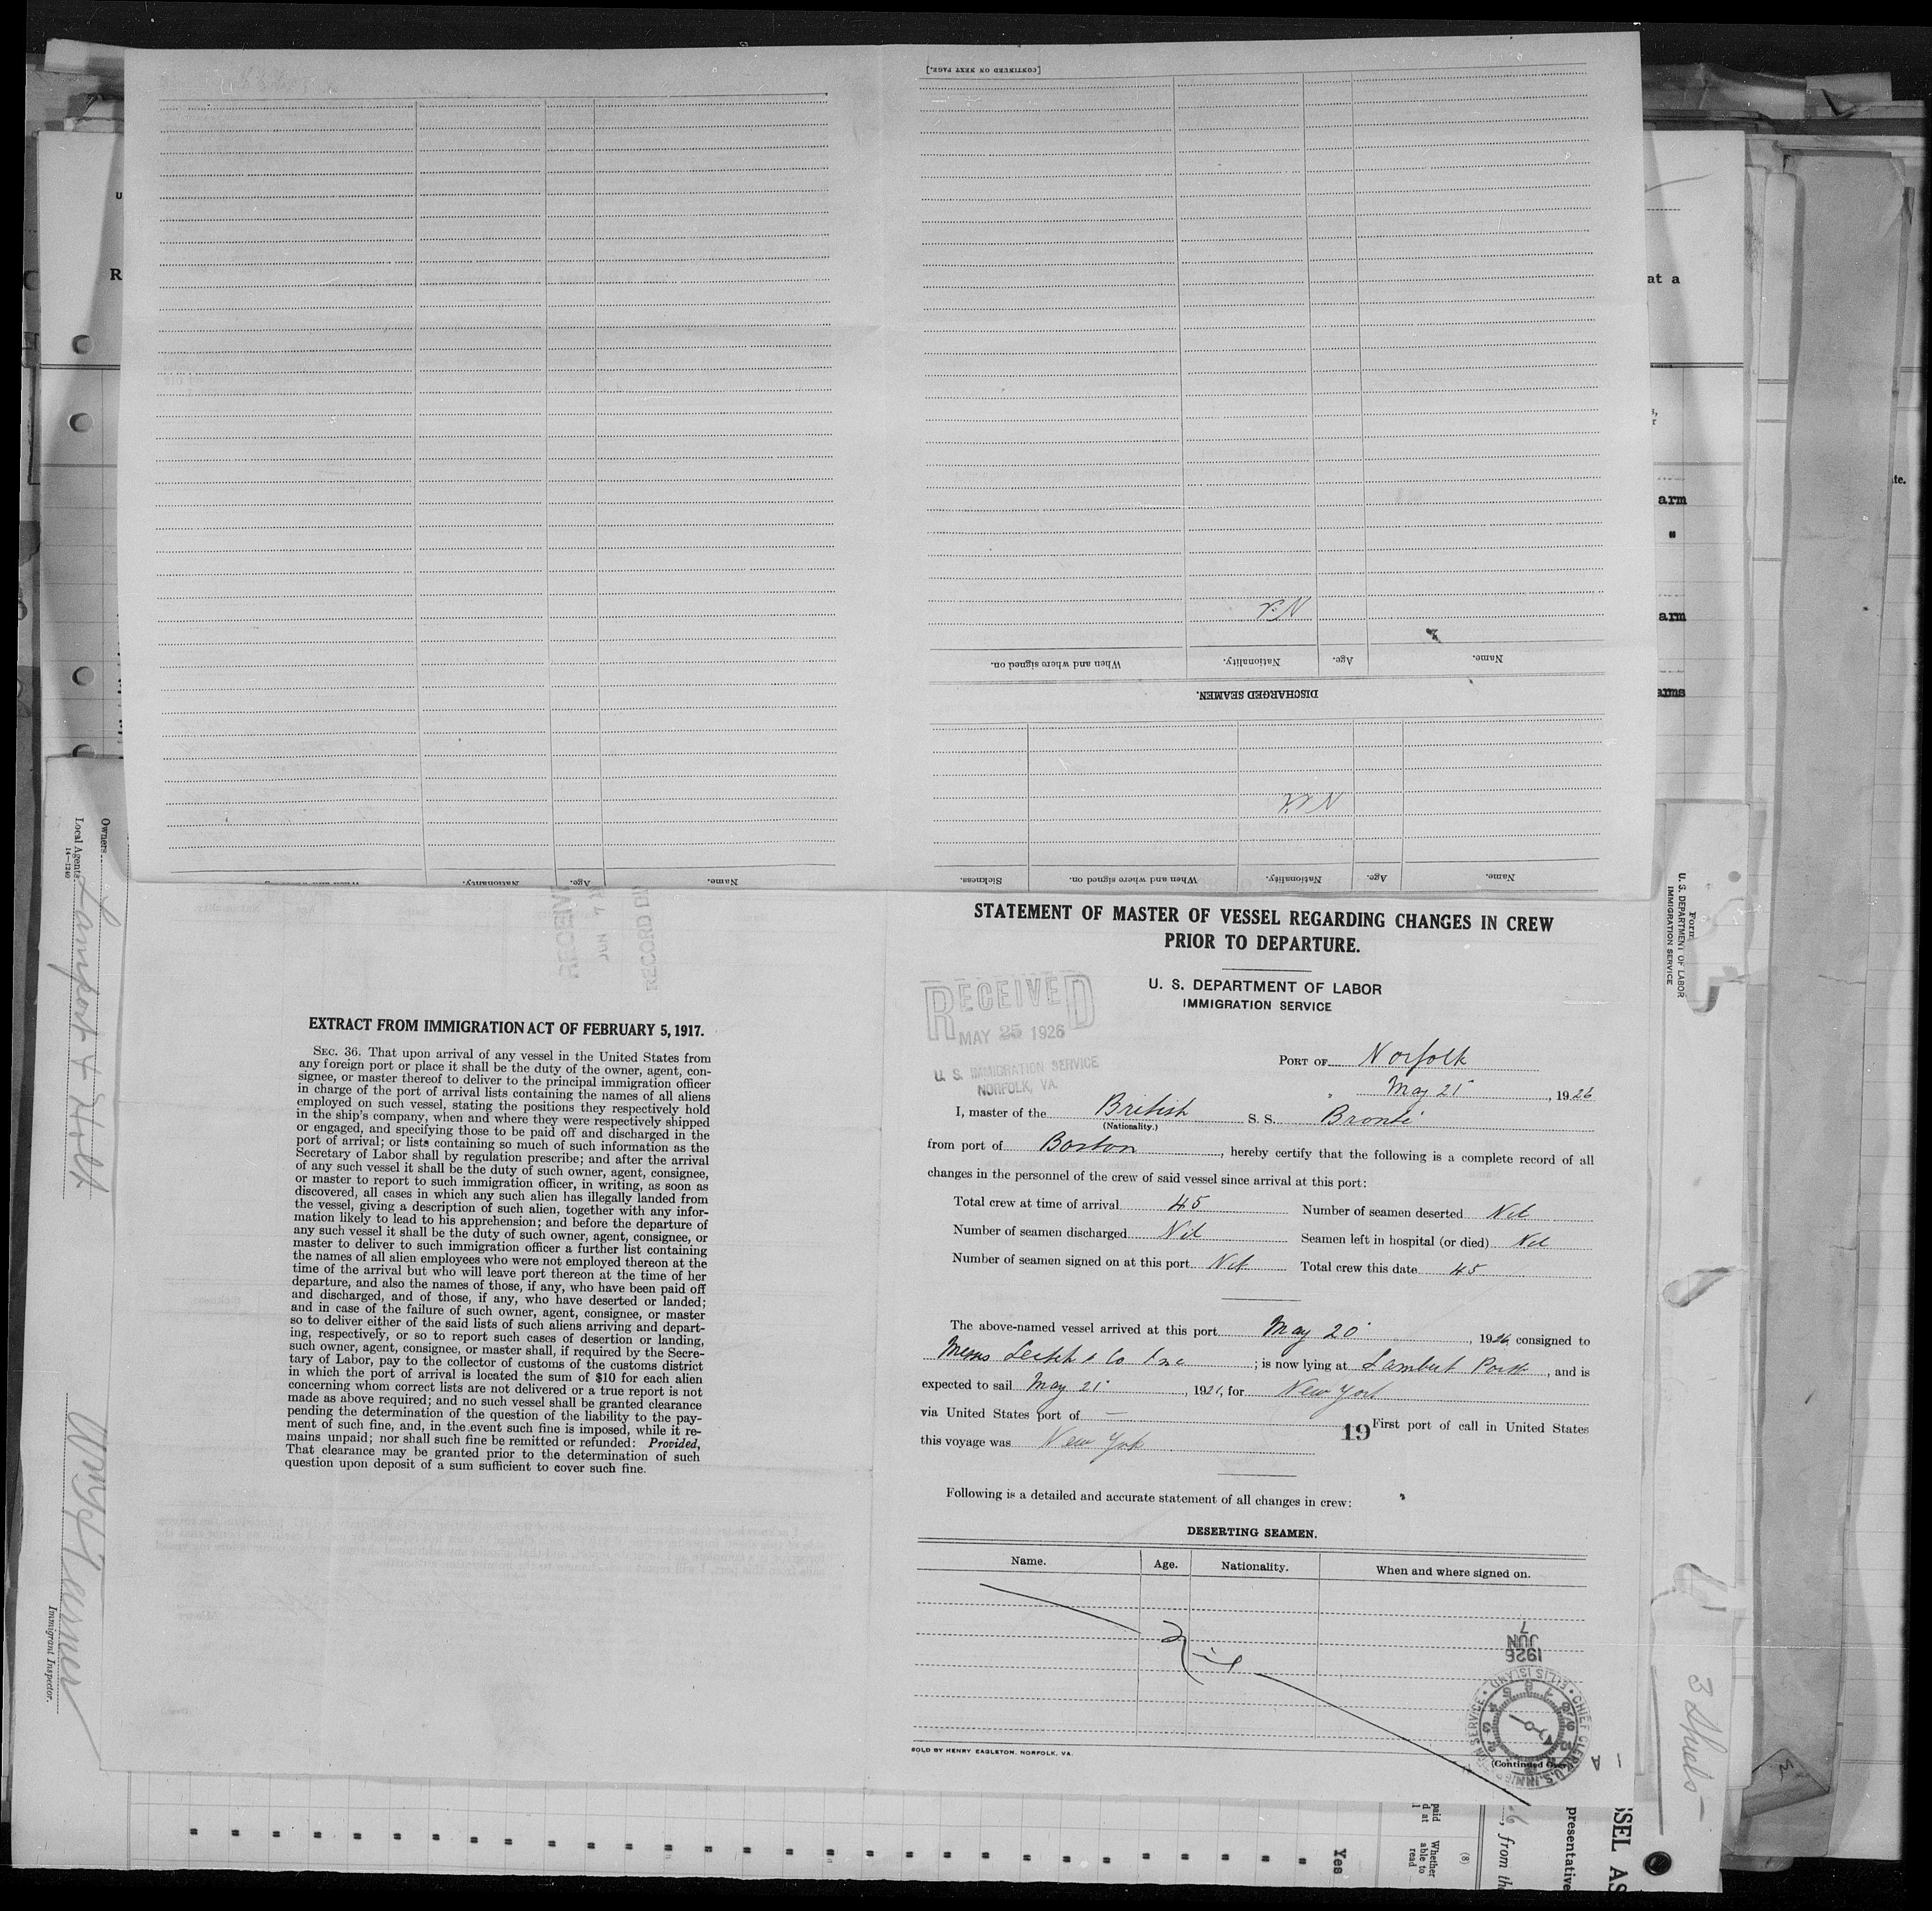 [CONTINUED ON NEXT PAGE.]
Name. Age. Nationality. When and where signed on.
DISCHARGED SEAMEN.
Name. Age. Nationality. When and where signed on. Sickness.
Name. Age. Nationality.
STATEMENT OF MASTER OF VESSEL REGARDING CHANGES IN CREW
PRIOR TO DEPARTURE.
U. S. DEPARTMENT OF LABOR
IMMIGRATION SERVICE
RECEIVED
MAY 25 1926
U. S. IMMIGRATION SERVICE
NORFOLK, VA.
PORT OF Norfolk
May 21, 1926
I, master of the British S. S. Bronte
(Nationality.)
from port of Boston, hereby certify that the following is a complete record of all
changes in the personnel of the crew of said vessel since arrival at this port:
Total crew at time of arrival 45 Number of seamen deserted Nil
Number of seamen discharged Nil Seamen left in hospital (or died) Nil
Number of seamen signed on at this port Nil Total crew this date 45
The above-named vessel arrived at this port May 20, 1926 consigned to
Leitch & Co Inc; is now lying at Lambert Point, and is
expected to sail May 21, 1921, for New York
via United States port of — 19 First port of call in United States
this voyage was New York
Following is a detailed and accurate statement of all changes in crew:
DESERTING SEAMEN.
Name. Age. Nationality. When and where signed on.
Nil
1926
JUN
7
SOLD BY HENRY EAGLETON, NORFOLK, VA.
(Continued Over)
EXTRACT FROM IMMIGRATION ACT OF FEBRUARY 5, 1917.
SEC. 36. That upon arrival of any vessel in the United States from
any foreign port or place it shall be the duty of the owner, agent, con-
signee, or master thereof to deliver to the principal immigration officer
in charge of the port of arrival lists containing the names of all aliens
employed on such vessel, stating the positions they respectively hold
in the ship's company, when and where they were respectively shipped
or engaged, and specifying those to be paid off and discharged in the
port of arrival; or lists containing so much of such information as the
Secretary of Labor shall by regulation prescribe; and after the arrival
of any such vessel it shall be the duty of such owner, agent, consignee,
or master to report to such immigration officer, in writing, as soon as
discovered, all cases in which any such alien has illegally landed from
the vessel, giving a description of such alien, together with any infor-
mation likely to lead to his apprehension; and before the departure of
any such vessel it shall be the duty of such owner, agent, consignee, or
master to deliver to such immigration officer a further list containing
the names of all alien employees who were not employed thereon at the
time of the arrival but who will leave port thereon at the time of her
departure, and also the names of those, if any, who have been paid off
and discharged, and of those, if any, who have deserted or landed;
and in case of the failure of such owner, agent, consignee, or master
so to deliver either of the said lists of such aliens arriving and depart-
ing, respectively, or so to report such cases of desertion or landing,
such owner, agent, consignee, or master shall, if required by the Secre-
tary of Labor, pay to the collector of customs of the customs district
in which the port of arrival is located the sum of $10 for each alien
concerning whom correct lists are not delivered or a true report is not
made as above required; and no such vessel shall be granted clearance
pending the determination of the question of the liability to the pay-
ment of such fine, and, in the event such fine is imposed, while it re-
mains unpaid; nor shall such fine be remitted or refunded: Provided,
That clearance may be granted prior to the determination of such
question upon deposit of a sum sufficient to cover such fine.
Owners
Local Agents Lamport & Holt
14-1240
Immigrant Inspector.
Form
U. S. DEPARTMENT OF LABOR
IMMIGRATION SERVICE
3 Sheets
Yes
(8)
Whether
able to
read
, from the
presentative